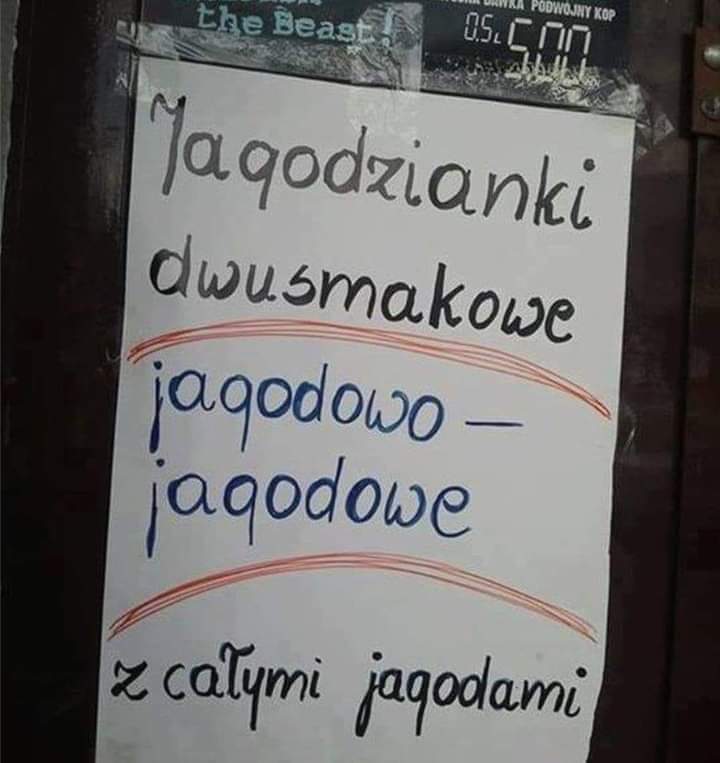 the Beast!
DAWKA PODWÓJNY KOP
0.5L 5,00
Jagodzianki
dwusmakowe
jagodowo –
jagodowe
z całymi jagodami